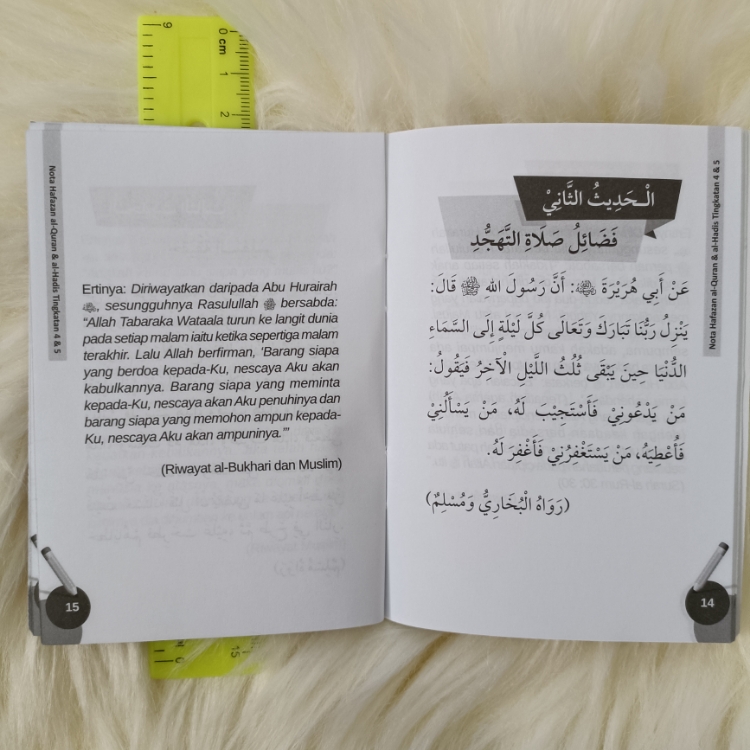 الْحَدِيثُ الثَّانِيْ
فَضَائِلُ صَلَاةِ التَّهَجُّدِ
عَنْ أَبِي هُرَيْرَةَ ﵁: أَنَّ رَسُولَ اللهِ ﷺ قَالَ:
يَنْزِلُ رَبُّنَا تَبَارَكَ وَتَعَالَى كُلَّ لَيْلَةٍ إِلَى السَّمَاءِ
الدُّنْيَا حِينَ يَبْقَى ثُلُثُ اللَّيْلِ الْآخِرُ فَيَقُولُ:
مَنْ يَدْعُونِيْ فَأَسْتَجِيْبَ لَهُ، مَنْ يَسْأَلُنِيْ
فَأُعْطِيَهُ، مَنْ يَسْتَغْفِرُنِيْ فَأَغْفِرَ لَهُ.
(رَوَاهُ الْبُخَارِيُّ وَمُسْلِمٌ)
Nota Hafazan al-Quran & al-Hadis Tingkatan 4 & 5
14
Nota Hafazan al-Quran & al-Hadis Tingkatan 4 & 5
Ertinya: Diriwayatkan daripada Abu Hurairah
﵁, sesungguhnya Rasulullah ﷺ bersabda:
“Allah Tabaraka Wataala turun ke langit dunia
pada setiap malam iaitu ketika sepertiga malam
terakhir. Lalu Allah berfirman, ‘Barang siapa
yang berdoa kepada-Ku, nescaya Aku akan
kabulkannya. Barang siapa yang meminta
kepada-Ku, nescaya akan Aku penuhinya dan
barang siapa yang memohon ampun kepada-
Ku, nescaya Aku akan ampuninya.’”
(Riwayat al-Bukhari dan Muslim)
15
0 cm
1
2
9
15